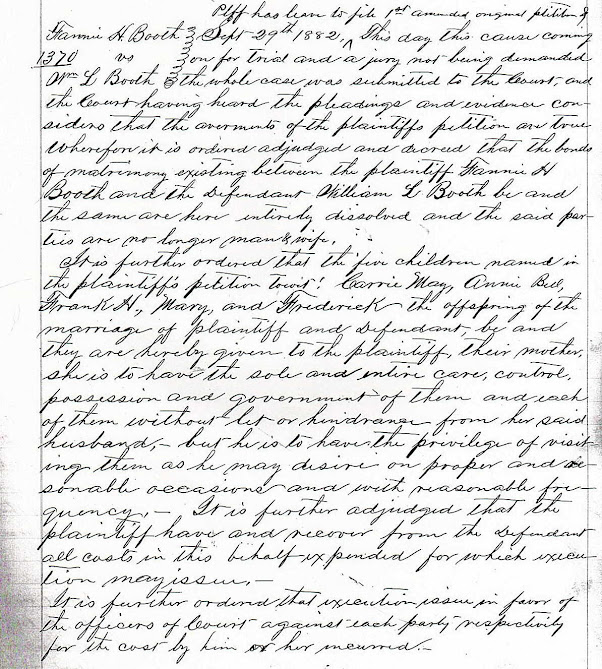 Plff has leave to file 1st amended original petition &
Fannie H. Booth Sept 29th 1882, ^ This day this cause coming
1370 vs on for trial and a jury not being demanded
Wm L Booth the whole case was submitted to the Court, and
the Court having heard the pleadings and evidence con-
siders that the averments of the plaintiffs petition are true
Wherefore it is ordered adjudged and decreed that the bonds
of matrimony existing between the plaintiff Fannie H
Booth and the Defendant William L Booth be and
the same are here entirely dissolved and the said par-
ties are no longer man & wife.
It is further ordered that the five children named in
the plaintiff's petition towit: Carrie May, Annie Bell,
Frank H., Mary, and Frederick the offspring of the
marriage of plaintiff and Defendant, be and
they are hereby given to the plaintiff, their mother,
she is to have the sole and entire care, control,
possession and government of them and each
of them without let or hindrance from her said
husband, – but he is to have the privilege of visit-
ing them as he may desire on proper and rea-
sonable occasions and with reasonable fre-
quency. – It is further adjudged that the
plaintiff have and recover from the Defendant
all costs in this behalf expended for which execu-
tion may issue. –
It is further ordered that execution issue in favor of
the officers of Court against each party respectively
for the cost by him or her incurred. –